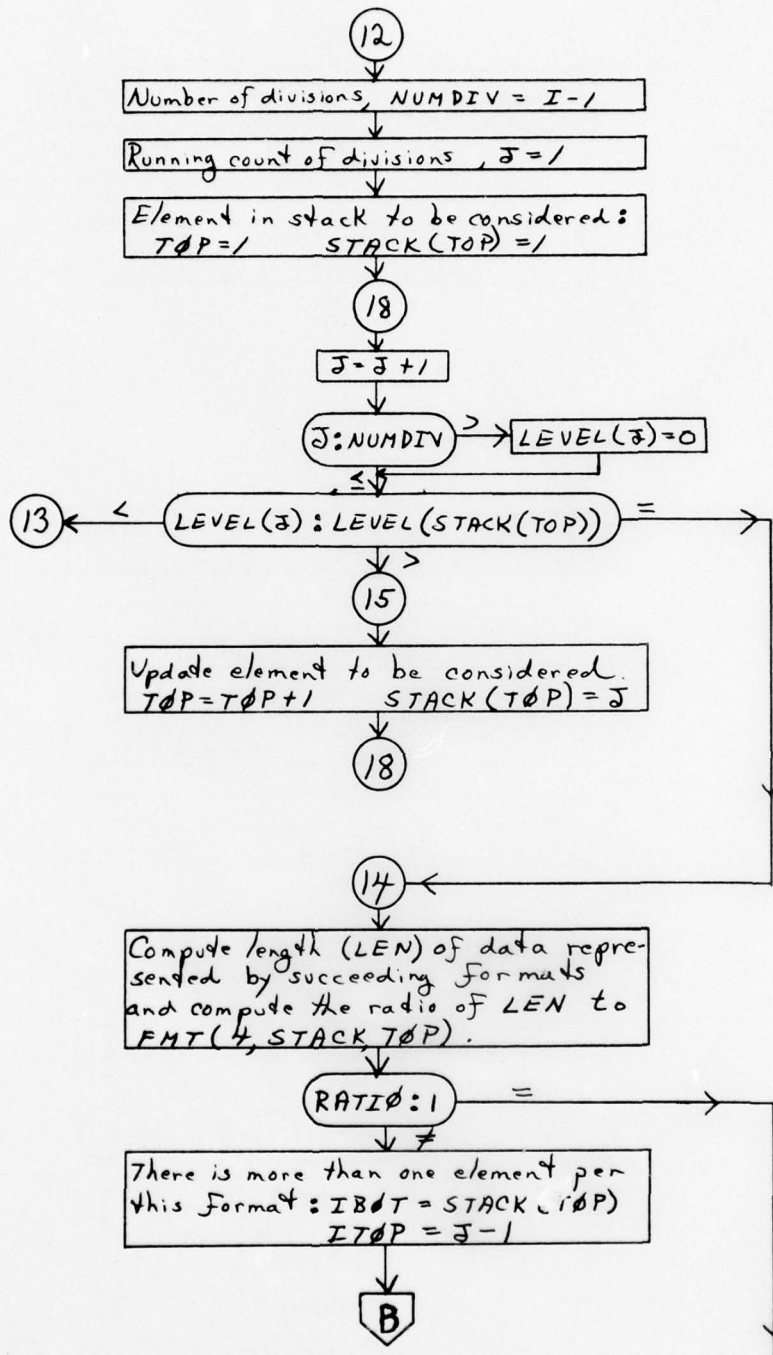 12
Number of divisions, NUMDIV = I-1
Running count of divisions, J=1
Element in stack to be considered:
TØP=1 STACK(TOP)=1
18
J=J+1
J:NUMDIV > LEVEL(J)=0
≤
13 < LEVEL(J):LEVEL(STACK(TOP)) =
>
15
Update element to be considered.
TØP=TØP+1 STACK(TØP)=J
18
14
Compute length (LEN) of data repre-
sented by succeeding formats
and compute the ratio of LEN to
FMT(4, STACK, TØP).
RATIØ:1 =
≠
There is more than one element per
this format: IBØT=STACK(TØP)
ITØP=J-1
B